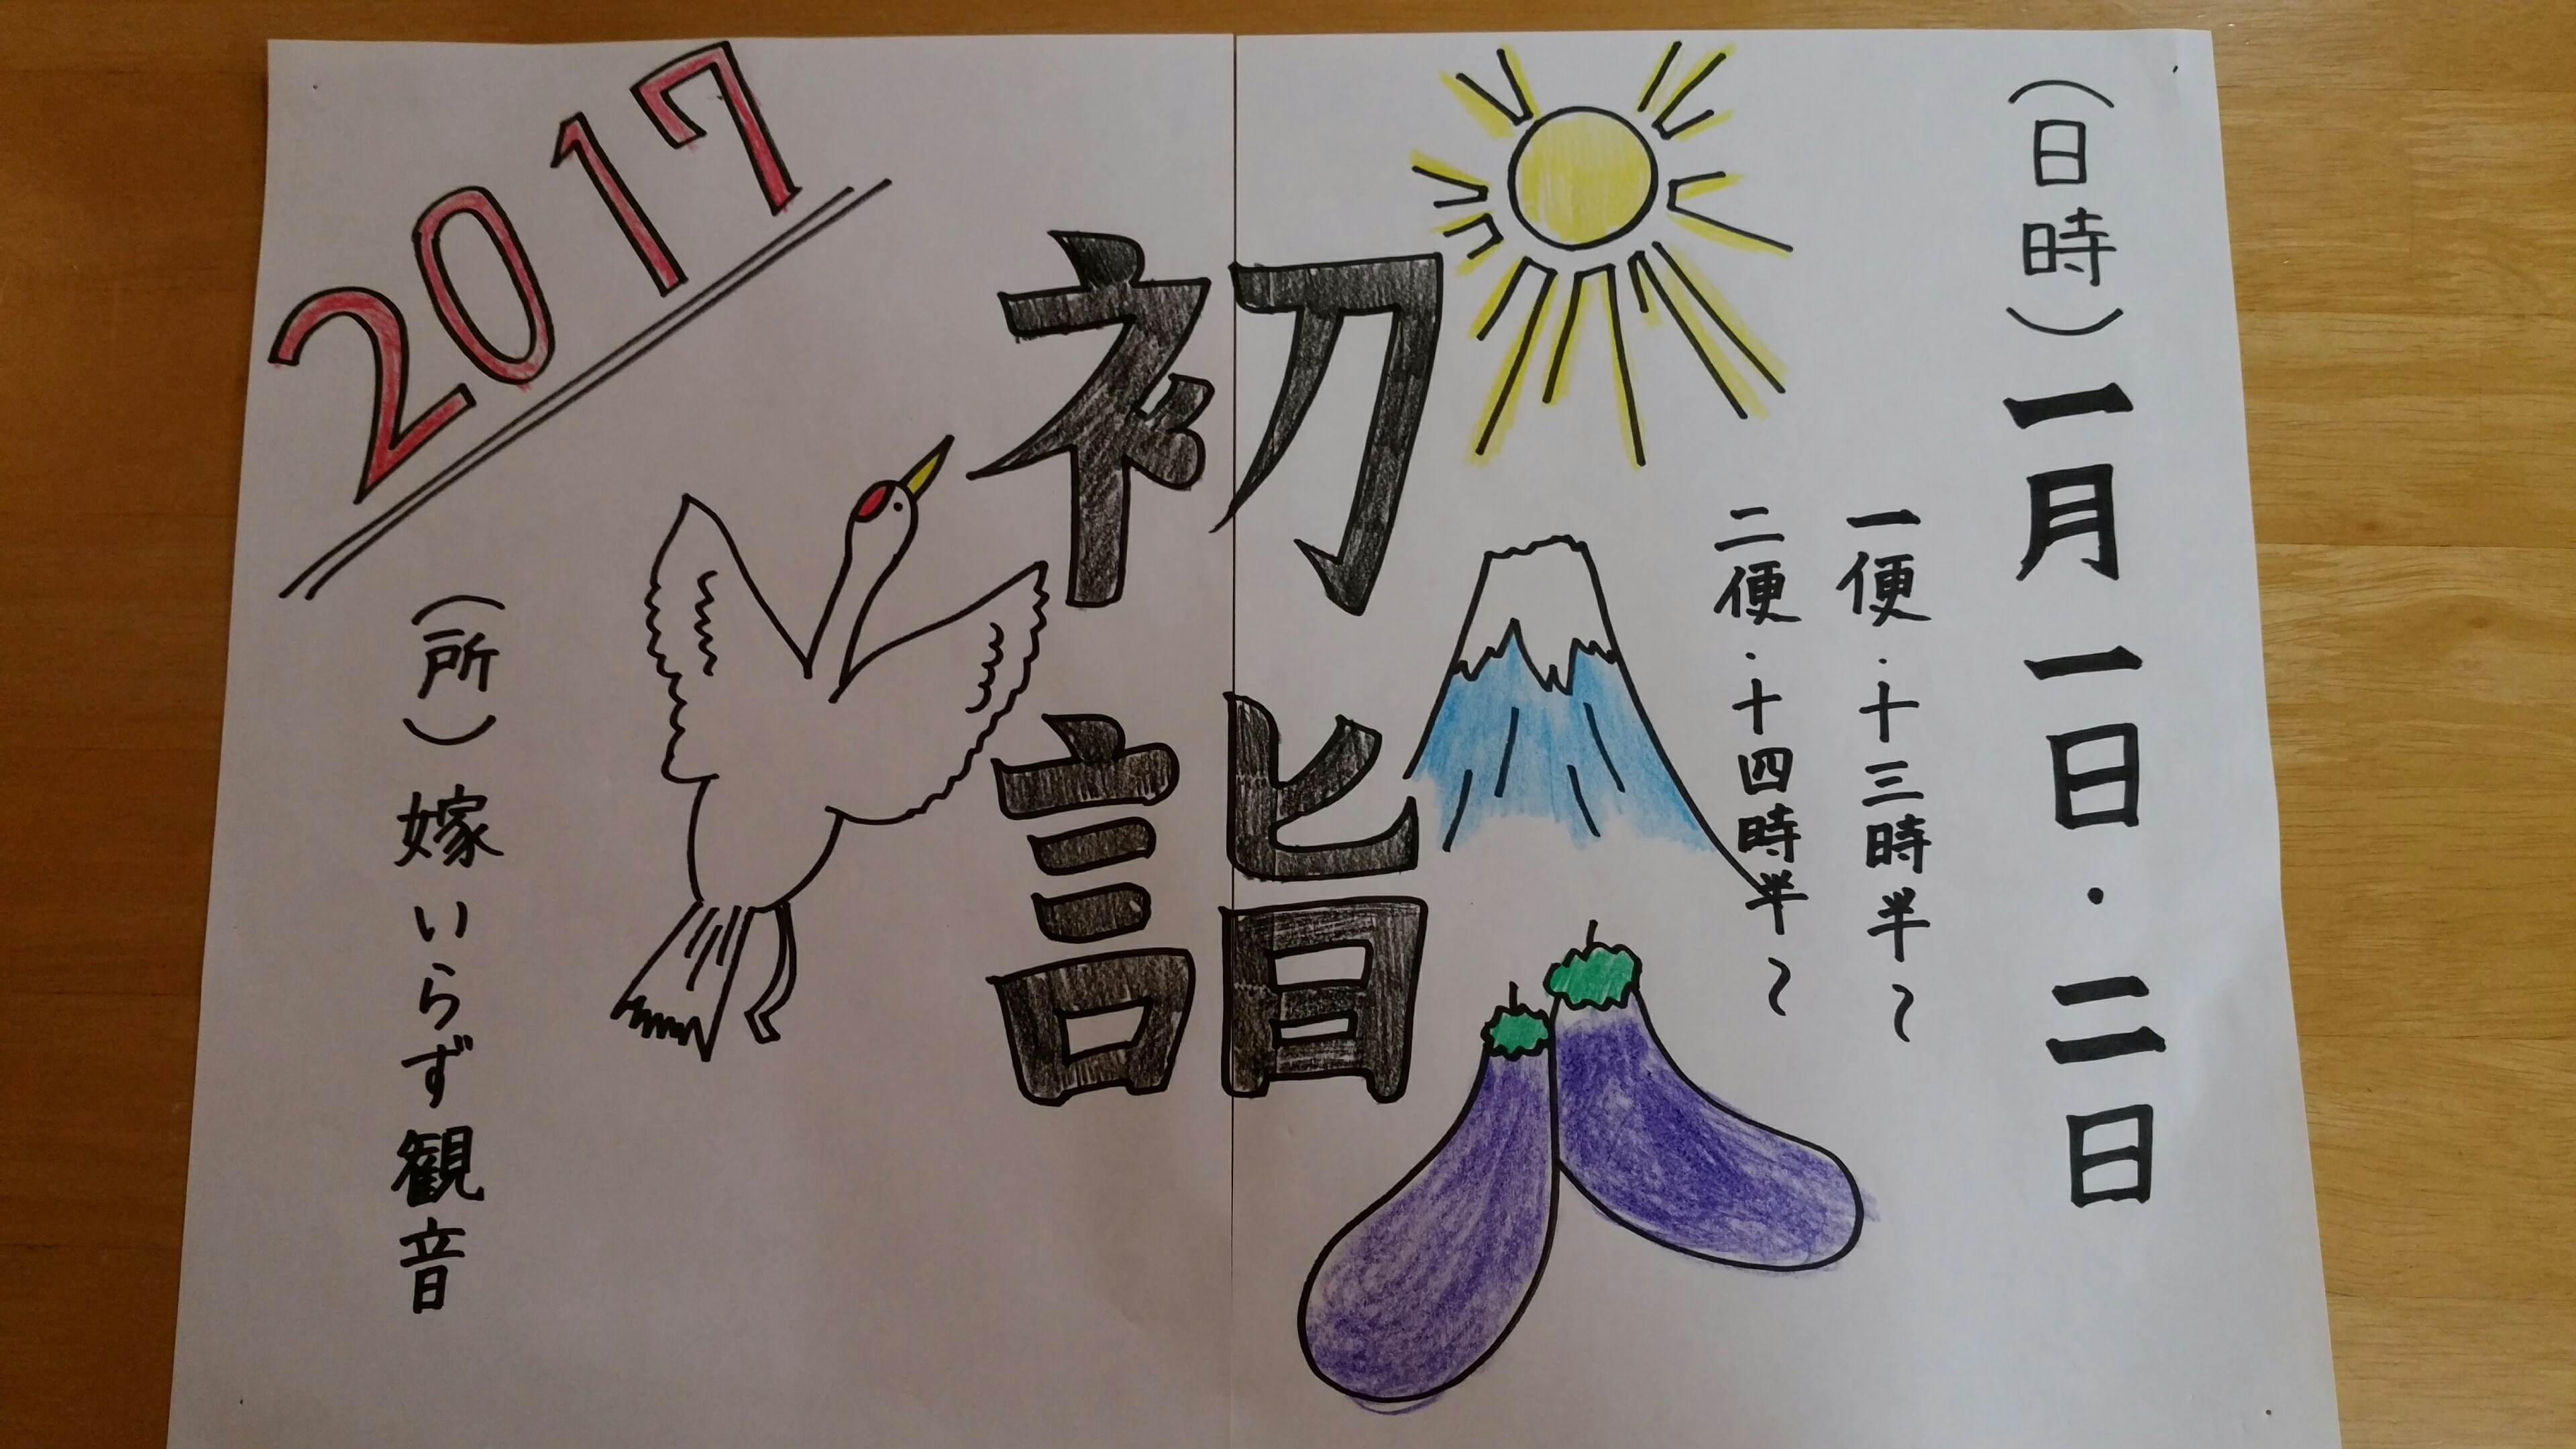 (日時)一月一日・二日
一便・十三時半〜
二便・十四時半〜
初詣
2017
(所)嫁いらず観音